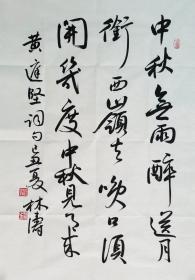 中秋無雨醉送月
銜西嶺去咲口須
開幾度中秋見月來
黃庭堅詞句己亥夏林濤